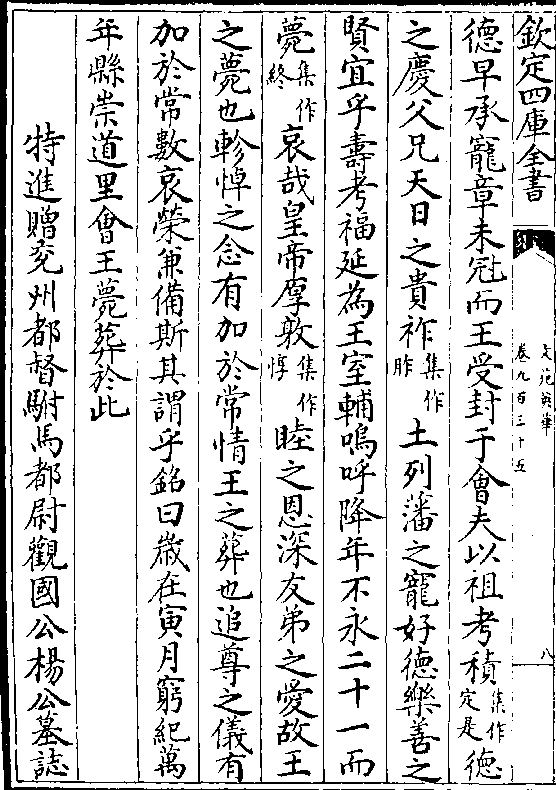 欽定四庫全書
文苑英華
卷九百三十五
八
德早承寵章未冠而王受封于會夫以祖考積集作定是德
之慶父兄天日之貴祚集作胙土列藩之寵好德樂善之
賢宜乎壽考福延為王室輔嗚呼降年不永二十一而
薨集作終哀哉皇帝厚敦集作惇睦之恩深友弟之愛故王
之薨也軫悼之念有加於常情王之葬也追尊之儀有
加於常數哀榮兼備斯其謂乎銘曰歲在寅月窮紀萬
年縣崇道里會王薨葬於此
特進贈兖州都督駙馬都尉觀國公楊公墓誌